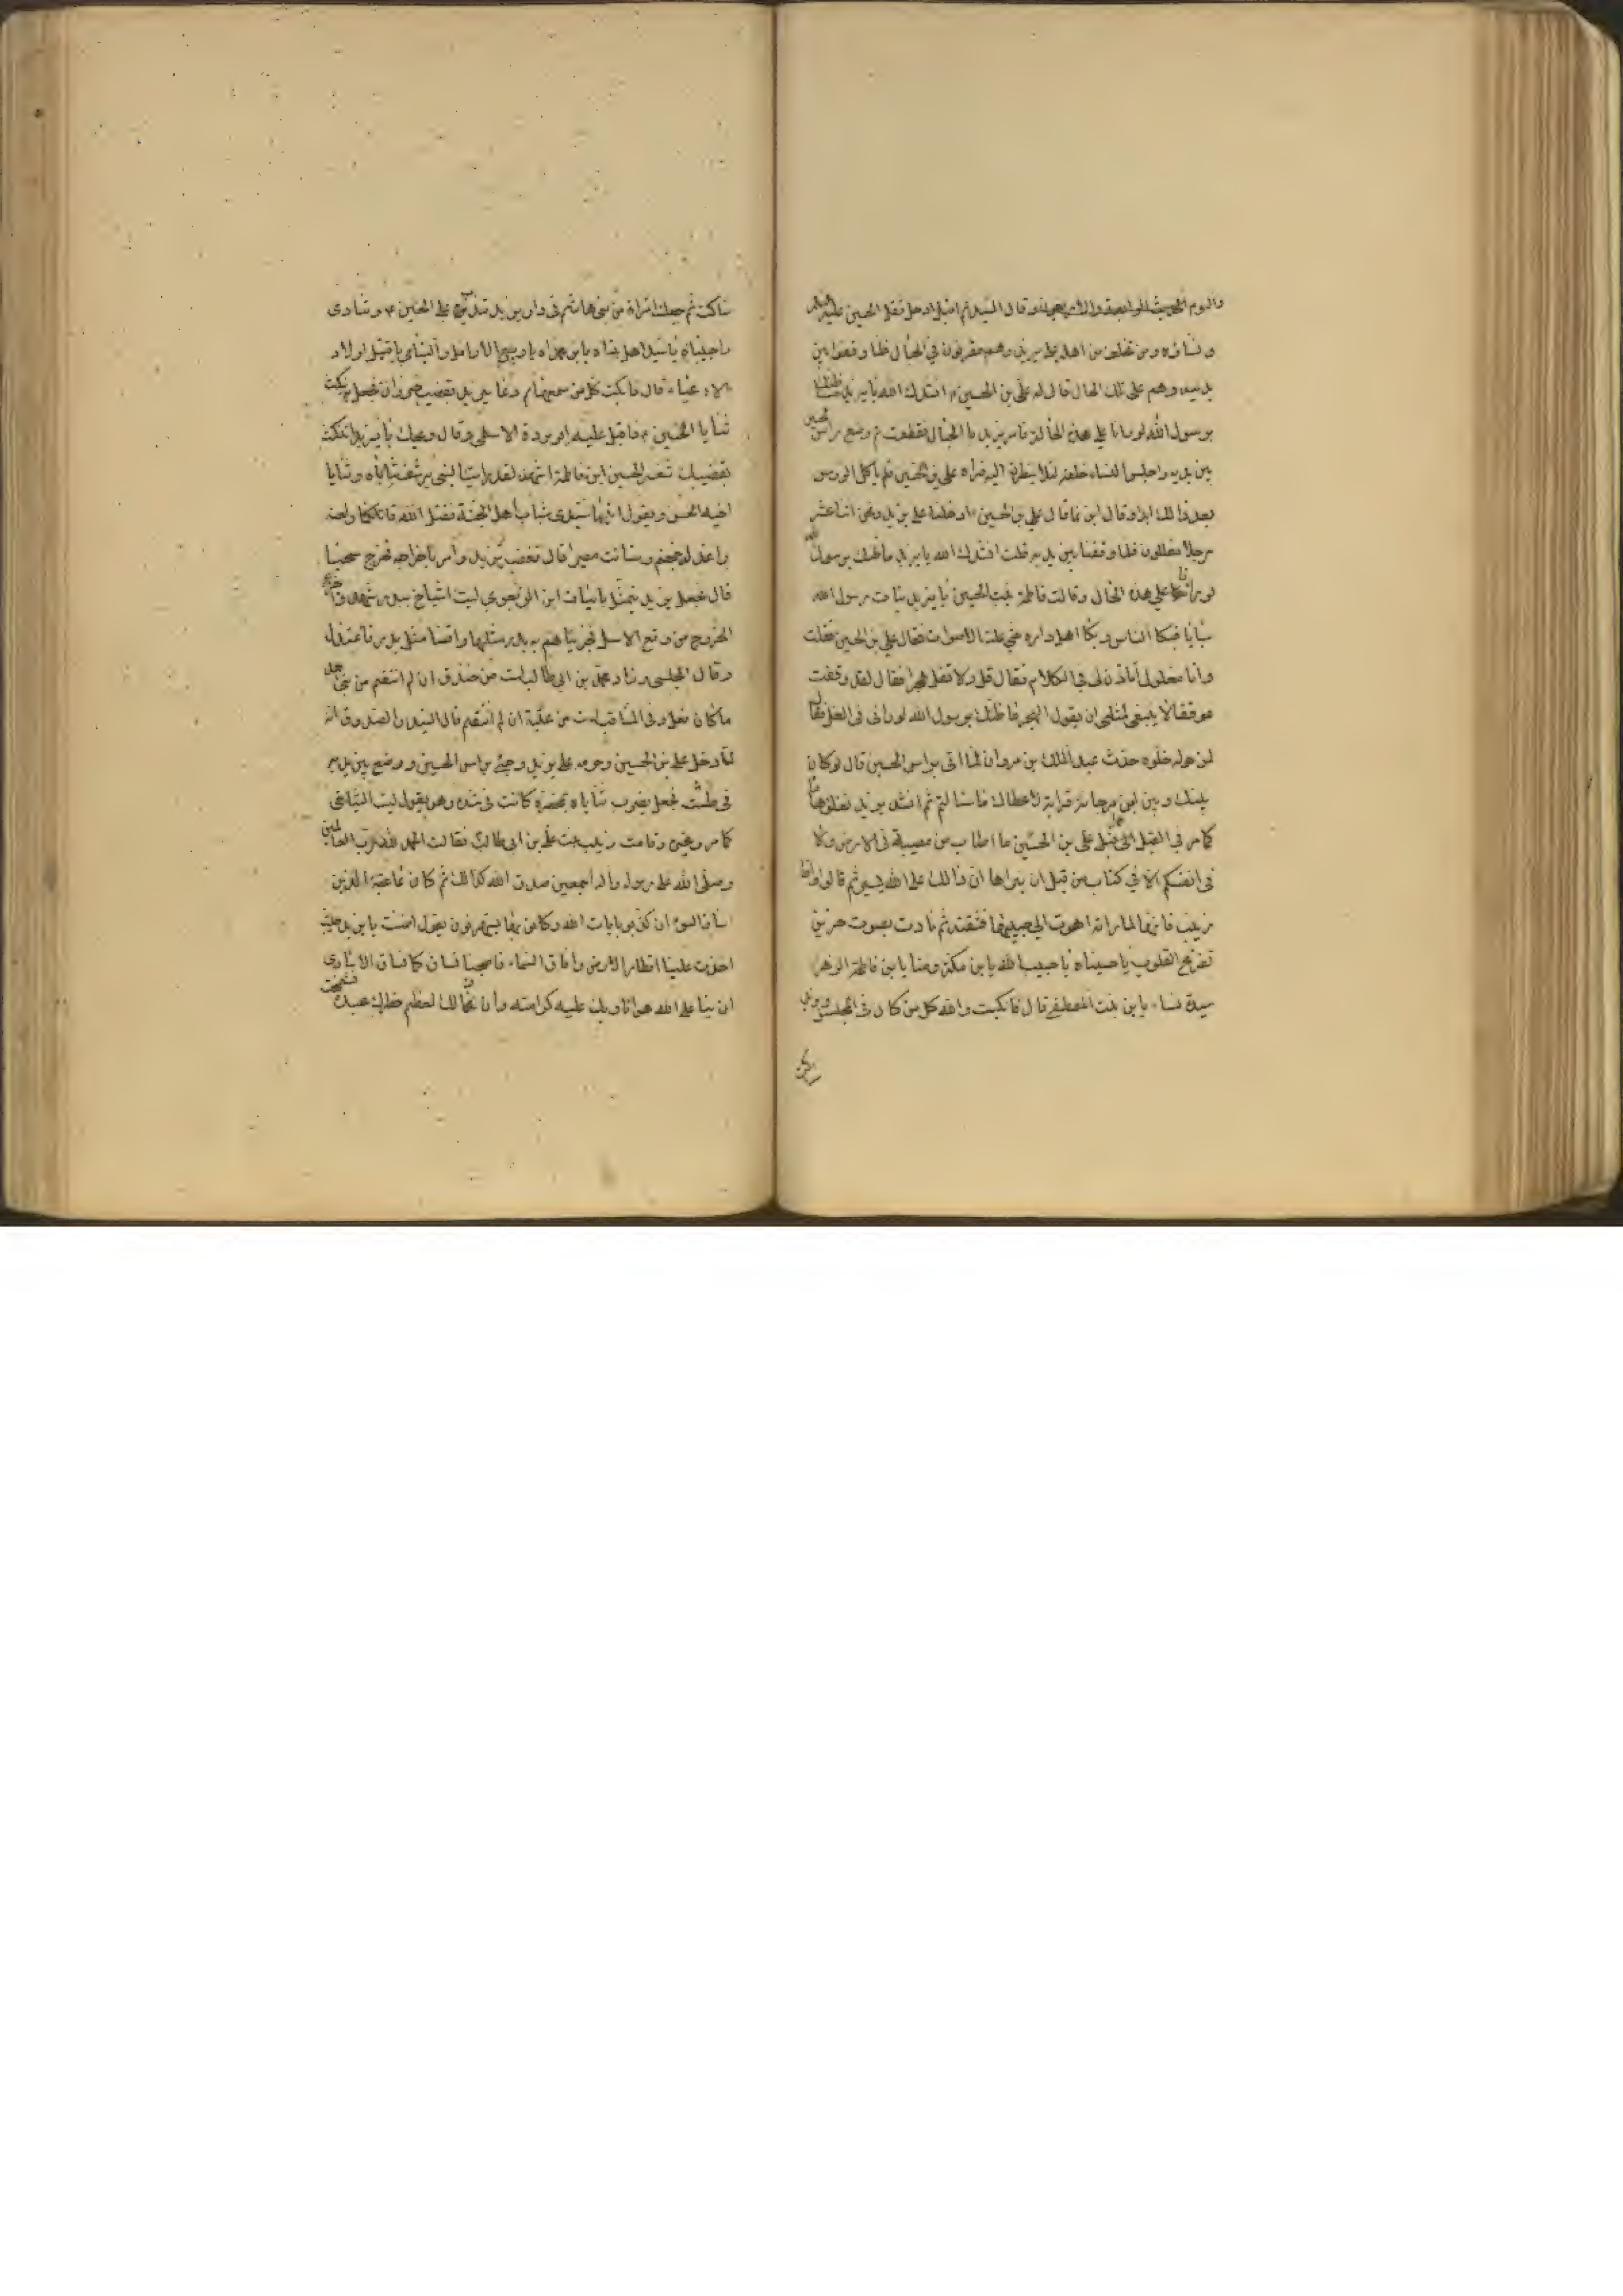 وقال السيد ثم ادخل ثقل الحسين عليه السلام
ونساؤه ومن تخلف من اهله على يزيد وهم مقرنون في الحبال فلما وقفوا بين
يديه وهم على تلك الحال قال له علي بن الحسين ع انشدك الله يا يزيد ما ظنك
برسول الله لو رانا على هذه الحالة فامر يزيد بالحبال فقطعت ثم وضع راس الحسين
بين يديه واجلس النساء خلفه لئلا ينظرن اليه فراه علي بن الحسين فلم ياكل الروس
بعد ذالك ابدا وقال ابن نما قال علي بن الحسين ادخلنا على يزيد ونحن اثنا عشر
رجلا مغللون فلما وقفنا بين يديه قلت انشدك الله يا يزيد ما ظنك برسول الله
لو رانا على هذه الحال وقالت فاطمة بنت الحسين يا يزيد بنات رسول الله
سبايا فبكا الناس وبكا اهل داره حتى علت الاصوات فقال علي بن الحسين فقلت
وانا مغلول أتاذن لي في الكلام فقال قل ولا تقل هجرا فقال لقد وقفت
موقفا لا ينبغي لمثلي ان يقول الهجر ما ظنك برسول الله لو راني في الغل فقال
لمن حوله خلوه حدث عبد الملك بن مروان لما اتى براس الحسين قال لو كان
بينك وبين ابن مرجانة قرابة لاعطاك ما سالتم ثم انشد يزيد نفلق هاما
كما مر في القبل ثم اقبل على علي بن الحسين ما اصاب من مصيبة في الارض ولا
في انفسكم الا في كتاب من قبل ان نبراها ان ذالك على الله يسير ثم قالوا واما
زينب فانها لما راته اهوت الى جيبها فشقته ثم نادت بصوت حزين
تقرح القلوب يا حسيناه يا حبيب الله يا ابن مكة ومنا يا ابن فاطمة الزهراء
سيدة نساء يا ابن بنت المصطفى قال فابكت والله كل من كان في المجلس ويزيد
ساكت
ساكت ثم جعلت امراة من بني هاشم في دار يزيد تندب على الحسين ع وتنادى
واحبيباه يا سيد اهل بيتاه يا ابن محمداه يا ربيع الارامل واليتامى يا قتيل اولاد
الادعياء قال فابكت كل من سمعها ثم دعا يزيد بقضيب خيزران فجعل ينكت
ثنايا الحسين ع فاقبل عليه ابو بردة الاسلمي وقال ويحك يا يزيد اتنكت
بقضيبك ثغر الحسين ابن فاطمة اشهد لقد رايت النبي يرشف ثناياه وثنايا
اخيه الحسن ويقول انتما سيدى شباب اهل الجنة فقتل الله قاتلكما ولعنه
واعد له جهنم وسائت مصيرا قال فغضب يزيد وامر باخراجه فخرج سحبا
قال فجعل يزيد يتمثل بابيات ابن الزبعرى ليت اشياخي ببدر شهدوا جزع
الخزرج من وقع الاسل فجزيناهم ببدر مثلها واقمنا مثل بدر فاعتدل
وقال المجلسي وزاد محمد بن ابي طالب لست من خندف ان لم انتقم من بني احمد
ما كان فعل وفي المناقب لست من عتبة ان لم انتقم قال السيد والصدوق انه
لما دخل علي بن الحسين وحرمه على يزيد وجيئ براس الحسين ووضع بين يديه
في طشت فجعل يضرب ثناياه بمخصرة كانت في يده وهو يقول ليت اشياخي
كما مر وغيره وقامت زينب بنت علي بن ابي طالب فقالت الحمد لله رب العالمين
وصلى الله على رسوله واله اجمعين صدق الله كذالك ثم كان عاقبة الذين
اساؤا السوء ان كذبوا بايات الله وكانوا بها يستهزؤن يقول اظننت يا يزيد حيث
اخذت علينا اقطار الارض وافاق السماء فاصبحنا نساق كما تساق الاسارى
ان بنا على الله هوانا وبك عليه كرامة وان ذالك لعظم خطرك عنده فشمخت